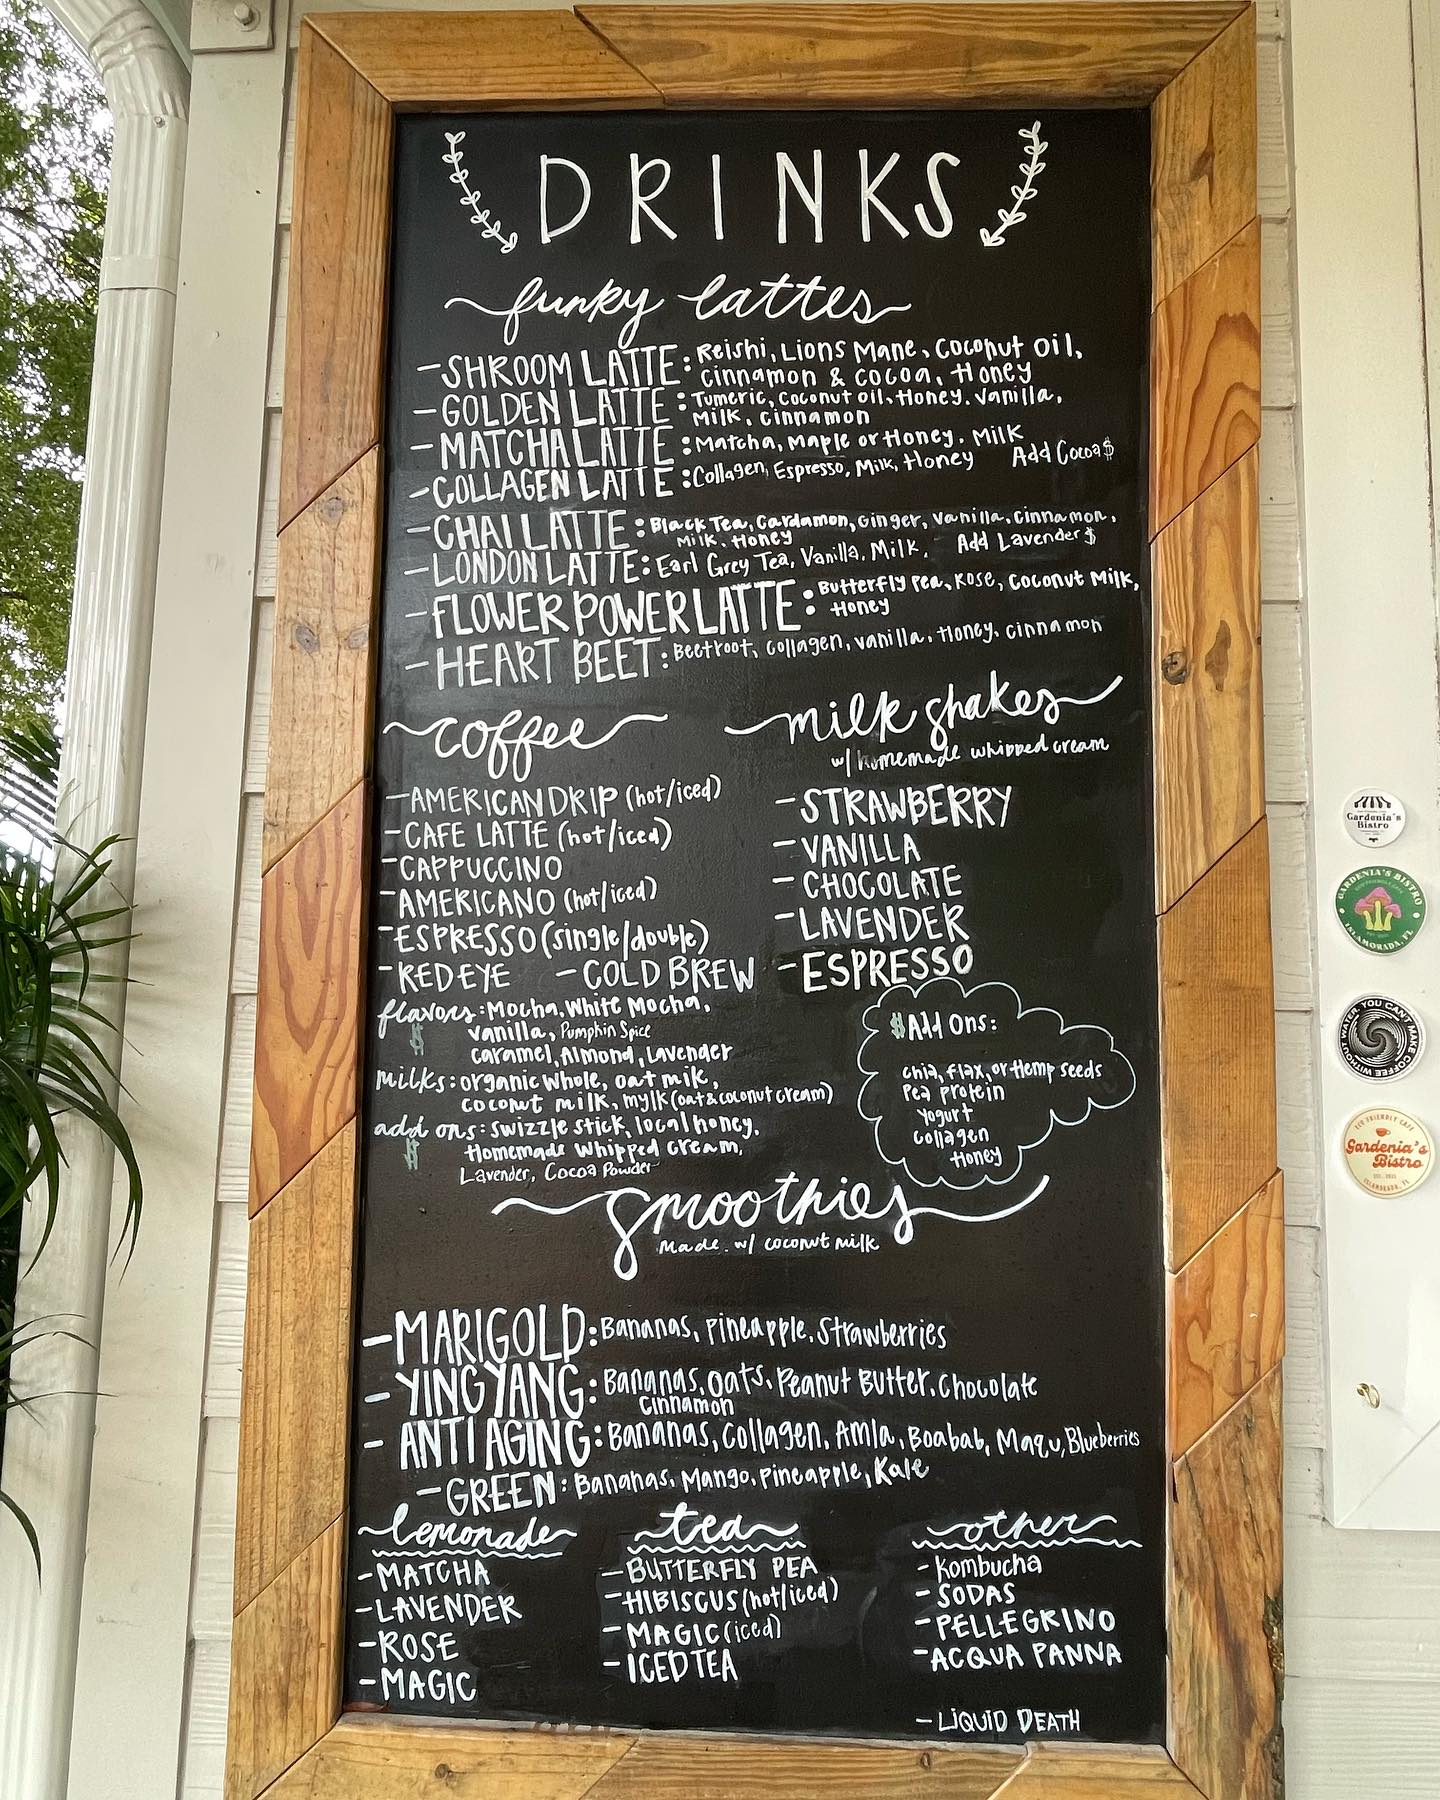 DRINKS
funky lattes
-SHROOM LATTE: Reishi, Lions Mane, Coconut Oil,
cinnamon & cocoa, Honey
-GOLDEN LATTE: Tumeric, coconut oil, Honey, vanilla,
Milk, cinnamon
-MATCHA LATTE: Matcha, Maple or Honey, Milk
-COLLAGEN LATTE: Collagen, Espresso, Milk, Honey Add Cocoa $
-CHAI LATTE: Black Tea, Cardamon, Ginger, Vanilla, Cinnamon,
Milk, Honey
-LONDON LATTE: Earl Grey Tea, Vanilla, Milk, Add Lavender $
-FLOWER POWER LATTE: Butterfly Pea, Rose, Coconut Milk,
Honey
-HEART BEET: Beetroot, collagen, vanilla, Honey, cinnamon
coffee
-AMERICAN DRIP (hot/iced)
-CAFE LATTE (hot/iced)
-CAPPUCCINO
-AMERICANO (hot/iced)
-ESPRESSO (single/double)
-RED EYE -COLD BREW
flavors: Mocha, White Mocha,
$ vanilla, Pumpkin Spice
caramel, Almond, Lavender
milks: organic whole, oat milk,
coconut milk, mylk (oat & coconut cream)
add ons: swizzle stick, local honey,
$ Homemade Whipped Cream,
Lavender, Cocoa Powder
milk shakes
w/ homemade whipped cream
-STRAWBERRY
-VANILLA
-CHOCOLATE
-LAVENDER
-ESPRESSO
$Add Ons:
chia, flax, or Hemp seeds
Pea protein
Yogurt
Collagen
Honey
smoothies
Made w/ coconut milk
-MARIGOLD: Bananas, Pineapple, Strawberries
-YING YANG: Bananas, Oats, Peanut Butter, Chocolate
Cinnamon
-ANTI AGING: Bananas, Collagen, Amla, Boabab, Maqu, Blueberries
-GREEN: Bananas, Mango, Pineapple, Kale
lemonade
-MATCHA
-LAVENDER
-ROSE
-MAGIC
tea
-BUTTERFLY PEA
-HIBISCUS (hot/iced)
-MAGIC (iced)
-ICED TEA
other
-Kombucha
-SODAS
-PELLEGRINO
-ACQUA PANNA
-LIQUID DEATH
Gardenia's
Bistro
GARDENIA'S BISTRO
ISLAMORADA, FL
WITHOUT WATER, YOU CAN'T MAKE COFFEE
ECO FRIENDLY CAFE
Gardenia's
Bistro
ISLAMORADA, FL